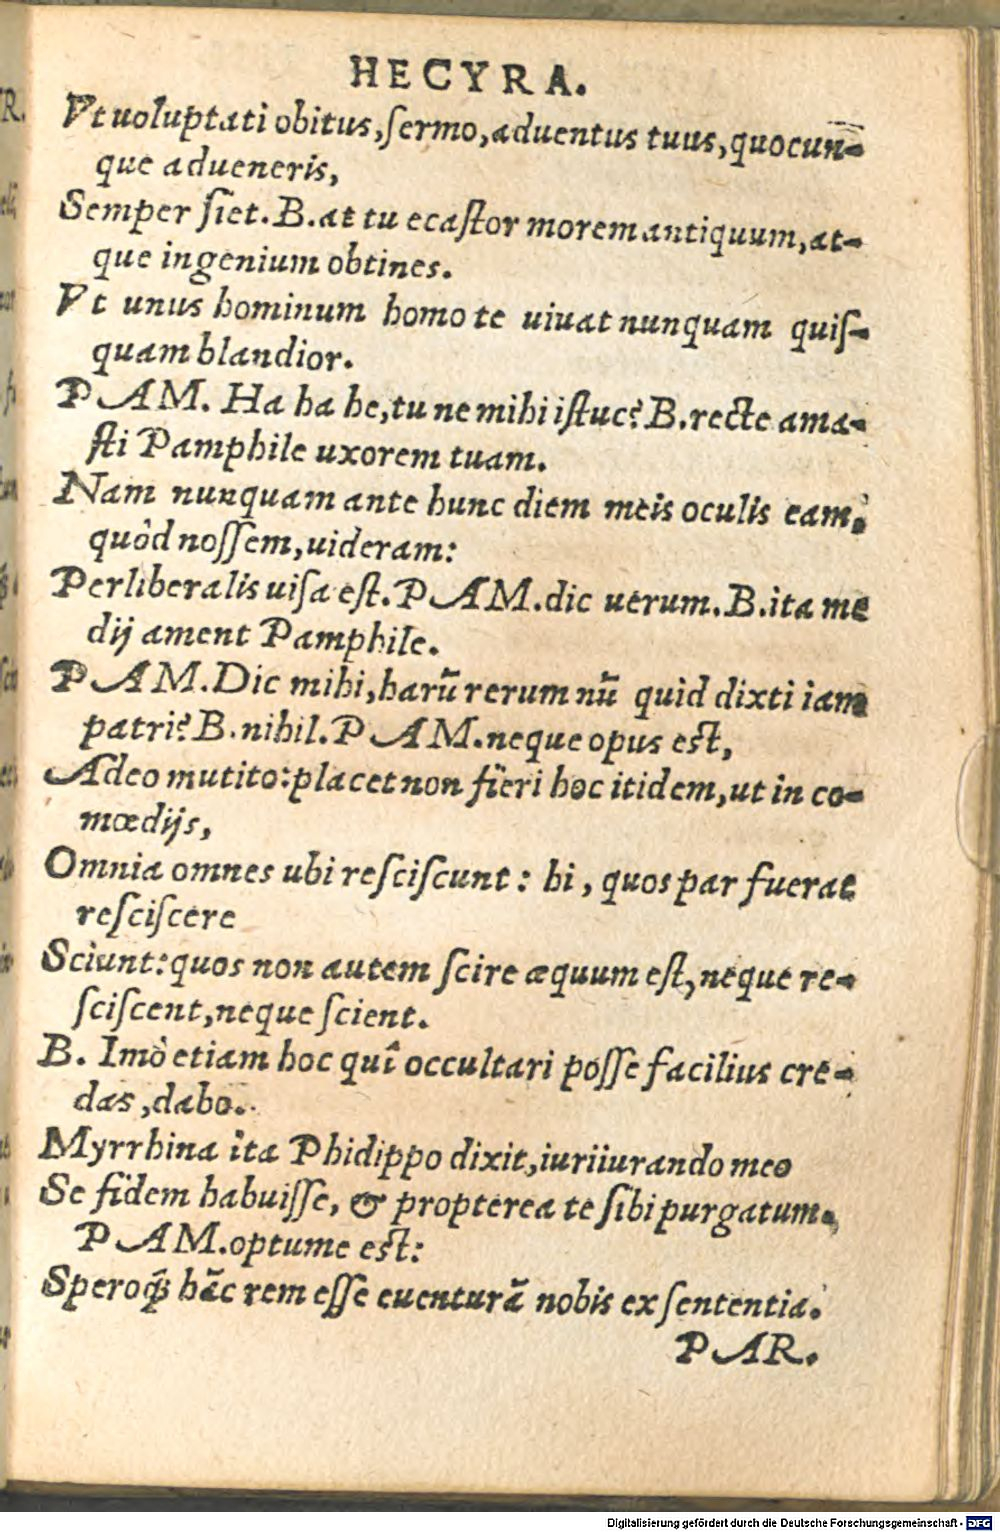 HECYRA.
Vt uoluptati obitus, ſermo, aduentus tuus, quocun-
que adueneris,
Semper ſiet. B. at tu ecaſtor morem antiquum, at-
que ingenium obtines.
Vt unus hominum homo te uiuat nunquam quiſ-
quam blandior.
PAM. Ha ha he, tu ne mihi iſtuc? B. recte ama-
ſti Pamphile uxorem tuam.
Nam nunquam ante hunc diem meis oculis eam,
quòd noſſem, uideram:
Perliberalis uiſa eſt. PAM. dic uerum. B. ita me
dij ament Pamphile.
PAM. Dic mihi, harũ rerum nũ quid dixti iam
patri? B. nihil. PAM. neque opus eſt,
Adeo mutito: placet non fieri hoc itidem, ut in co-
mœdijs,
Omnia omnes ubi reſciſcunt: hi, quos par fuerat
reſciſcere
Sciunt: quos non autem ſcire æquum eſt, neque re-
ſciſcent, neque ſcient.
B. Imò etiam hoc quî occultari poſſe facilius cre-
das, dabo.
Myrrhina ita Phidippo dixit, iuriiurando meo
Se fidem habuiſſe, & propterea te ſibi purgatum.
PAM. optume eſt:
Speroq́ꝫ hãc rem eſſe euenturã nobis ex ſententia.
PAR.
Digitalisierung gefördert durch die Deutsche Forschungsgemeinschaft - DFG